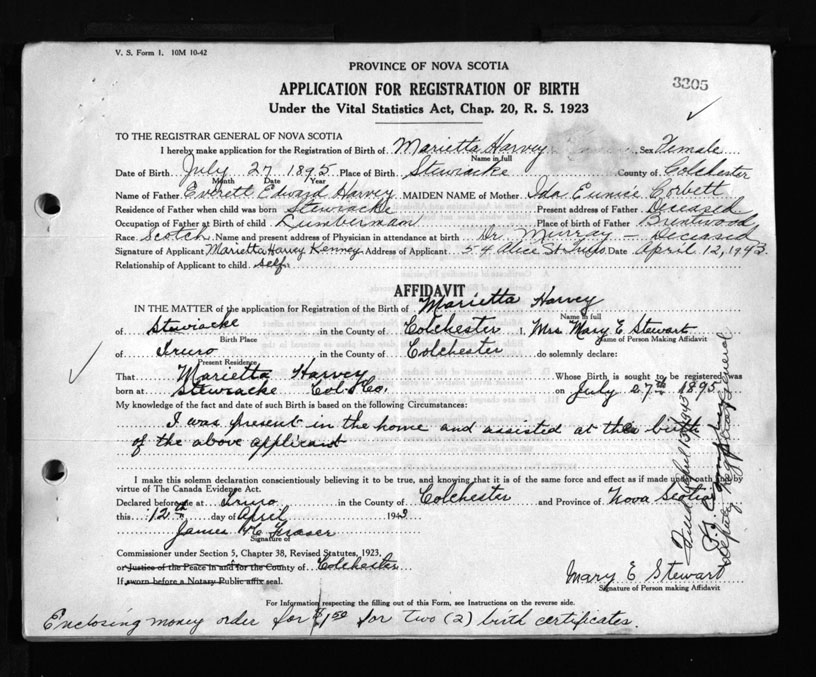 V. S. Form 1. 10M 10-42
PROVINCE OF NOVA SCOTIA
3305
APPLICATION FOR REGISTRATION OF BIRTH
Under the Vital Statistics Act, Chap. 20, R. S. 1923
TO THE REGISTRAR GENERAL OF NOVA SCOTIA
I hereby make application for the Registration of Birth of Marietta Harvey Sex Female
Name in full
Date of Birth July 27 1895 Place of Birth Stewiacke County of Colchester
Month Date Year
Name of Father Everett Edward Harvey MAIDEN NAME of Mother Ida Eunice Corbett
Residence of Father when child was born Stewiacke Present address of Father Deceased
Occupation of Father at Birth of child Lumberman Place of birth of Father Bruntwood
Race Scotch Name and present address of Physician in attendance at birth Dr. Murray - Deceased
Signature of Applicant Marietta Harvey Kenney Address of Applicant 54 Alice St. Truro Date April 12, 1943.
Relationship of Applicant to child self
AFFIDAVIT
IN THE MATTER of the application for Registration of the Birth of Marietta Harvey
Name in full
of Stewiacke in the County of Colchester I, Mrs. Mary E. Stewart
Birth Place Name of Person Making Affidavit
of Truro in the County of Colchester do solemnly declare:
Present Residence
That Marietta Harvey Whose Birth is sought to be registered was
born at Stewiacke Col. Co. on July 27th 1895
My knowledge of the fact and date of such Birth is based on the following Circumstances:
I was present in the home and assisted at the birth
of the above applicant
I make this solemn declaration conscientiously believing it to be true, and knowing that it is of the same force and effect as if made under oath and by
virtue of The Canada Evidence Act.
Declared before me at Truro in the County of Colchester and Province of Nova Scotia
this 12th day of April 1943
James H C Fraser
Signature of
Commissioner under Section 5, Chapter 38, Revised Statutes, 1923,
or Justice of the Peace in and for the County of Colchester
If sworn before a Notary Public affix seal.
Mary E Stewart
Signature of Person making Affidavit
Filed April 13th 1943
Deputy Registrar General
For Information respecting the filling out of this Form, see Instructions on the reverse side.
Enclosing money order for $1.50 for two (2) birth certificates.